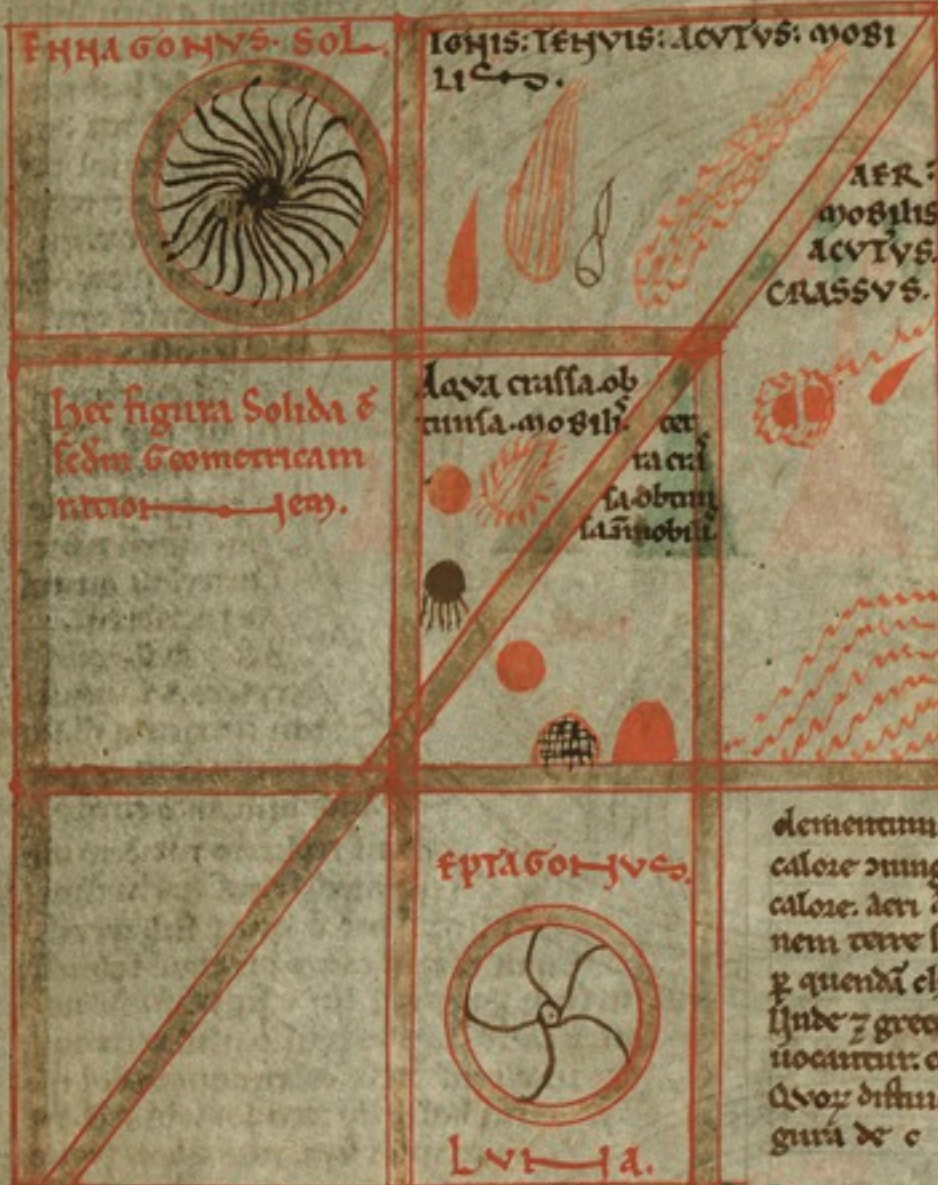 ENNAGONVS. SOL.
IGNIS: TENVIS: ACVTVS: MOBI
LIS.
AER:
MOBILIS
ACVTVS.
CRASSVS.
hec figura Solida ē
scdm Geometricam
ration em.
Aqva crassa ob
tunsa. mobilis
ter
ra cras
sa obtun
sa īmobilis
EPTAGONVS.
LVNa.
elementum
calore
calore. aeri
nem terre
ꝑ quendā
Unde ⁊ grece
uocantur.
Qvoꝝ distin
gura de c